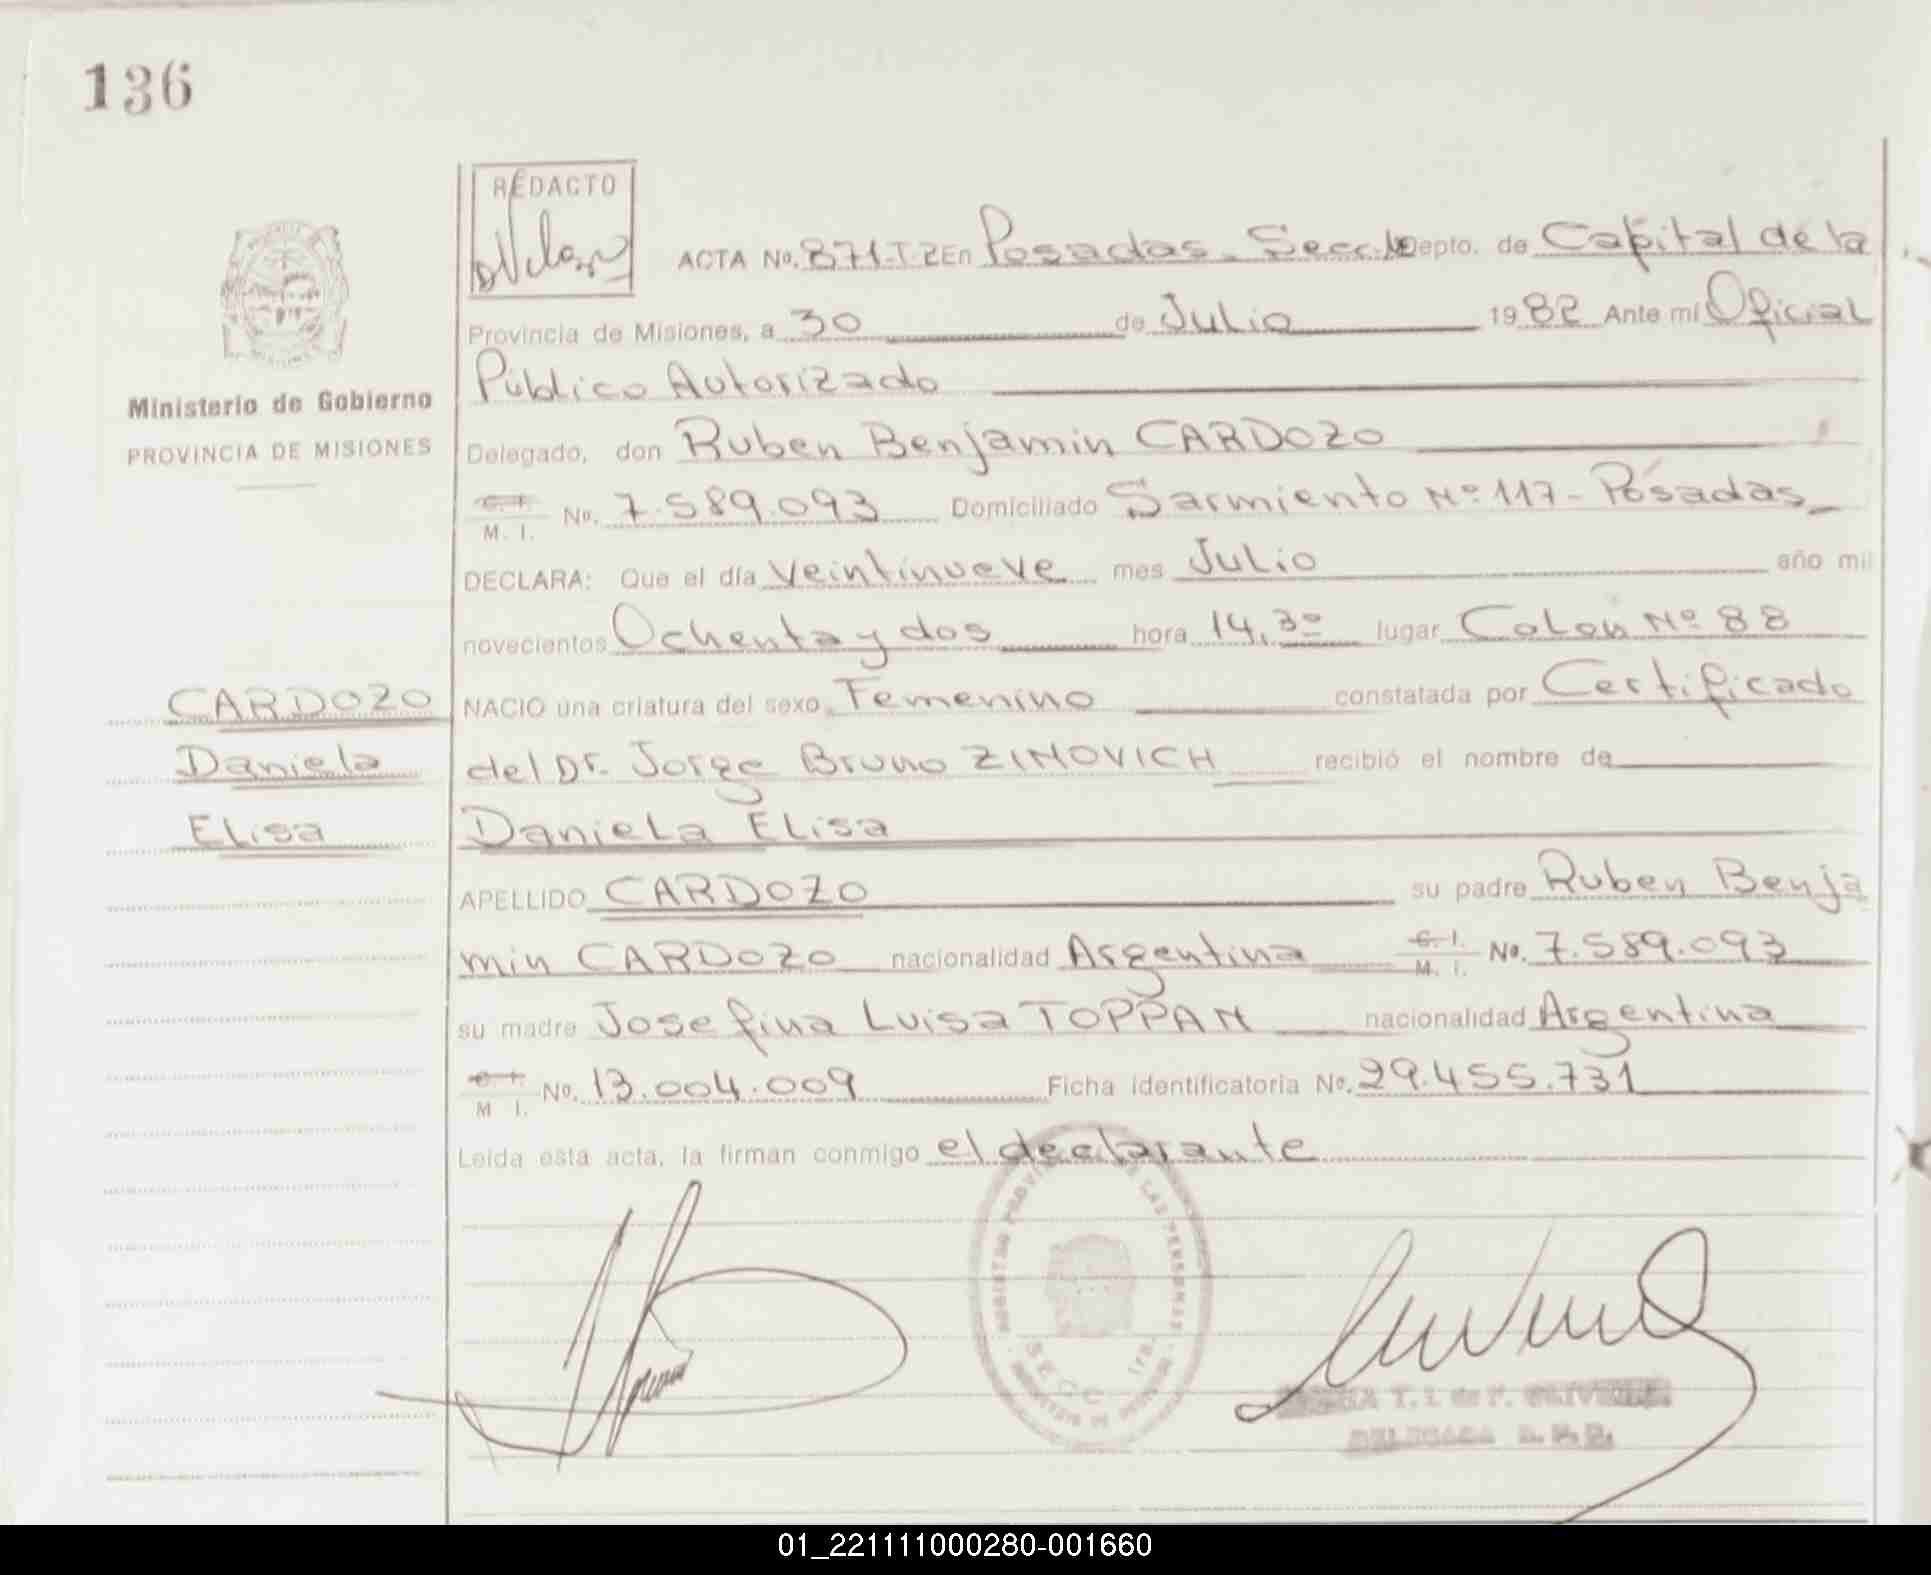 136
REDACTO
ACTA No. 871-T-2 En Posadas - Secc. 1º Depto. de Capital de la
Provincia de Misiones, a 30 de Julio 1982 Ante mí Oficial
Ministerio de Gobierno
PROVINCIA DE MISIONES
Público Autorizado
Delegado, don Ruben Benjamin CARDOZO
C. I.
M. I. No. 7.589.093 Domiciliado Sarmiento Nº 117 - Pósadas
DECLARA: Que el día veintinueve mes Julio año mil
novecientos Ochenta y dos hora 14,30 lugar Colón Nº 88
CARDOZO
Daniela
Elisa
NACIO una criatura del sexo Femenino constatada por Certificado
del Dr. Jorge Bruno ZIMOVICH recibió el nombre de
Daniela Elisa
APELLIDO CARDOZO su padre Ruben Benja
min CARDOZO nacionalidad Argentina C. I. M. I. No. 7.589.093
su madre Josefina Luisa TOPPAN nacionalidad Argentina
C. I. M I. No. 13.004.009 Ficha identificatoria No. 29.455.731
Leida esta acta, la firman conmigo el declarante
LAS PERSONAS
SECC. 1ra.
DELEGADA R. P. P.
01_221111000280-001660